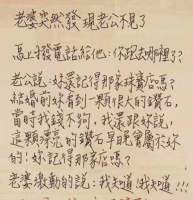 老婆突然發現老公不見了
馬上發電話給他:你跑去哪裡了?
老公說:妳還記得那家珠寶店嗎?
結婚前妳看到一顆很大的鑽石,
當時我錢不夠,我還跟妳說,
這顆漂亮的鑽石早晚會屬於妳
的!妳記得那家店嗎?
老婆激動的說:我知道!我知道!!!